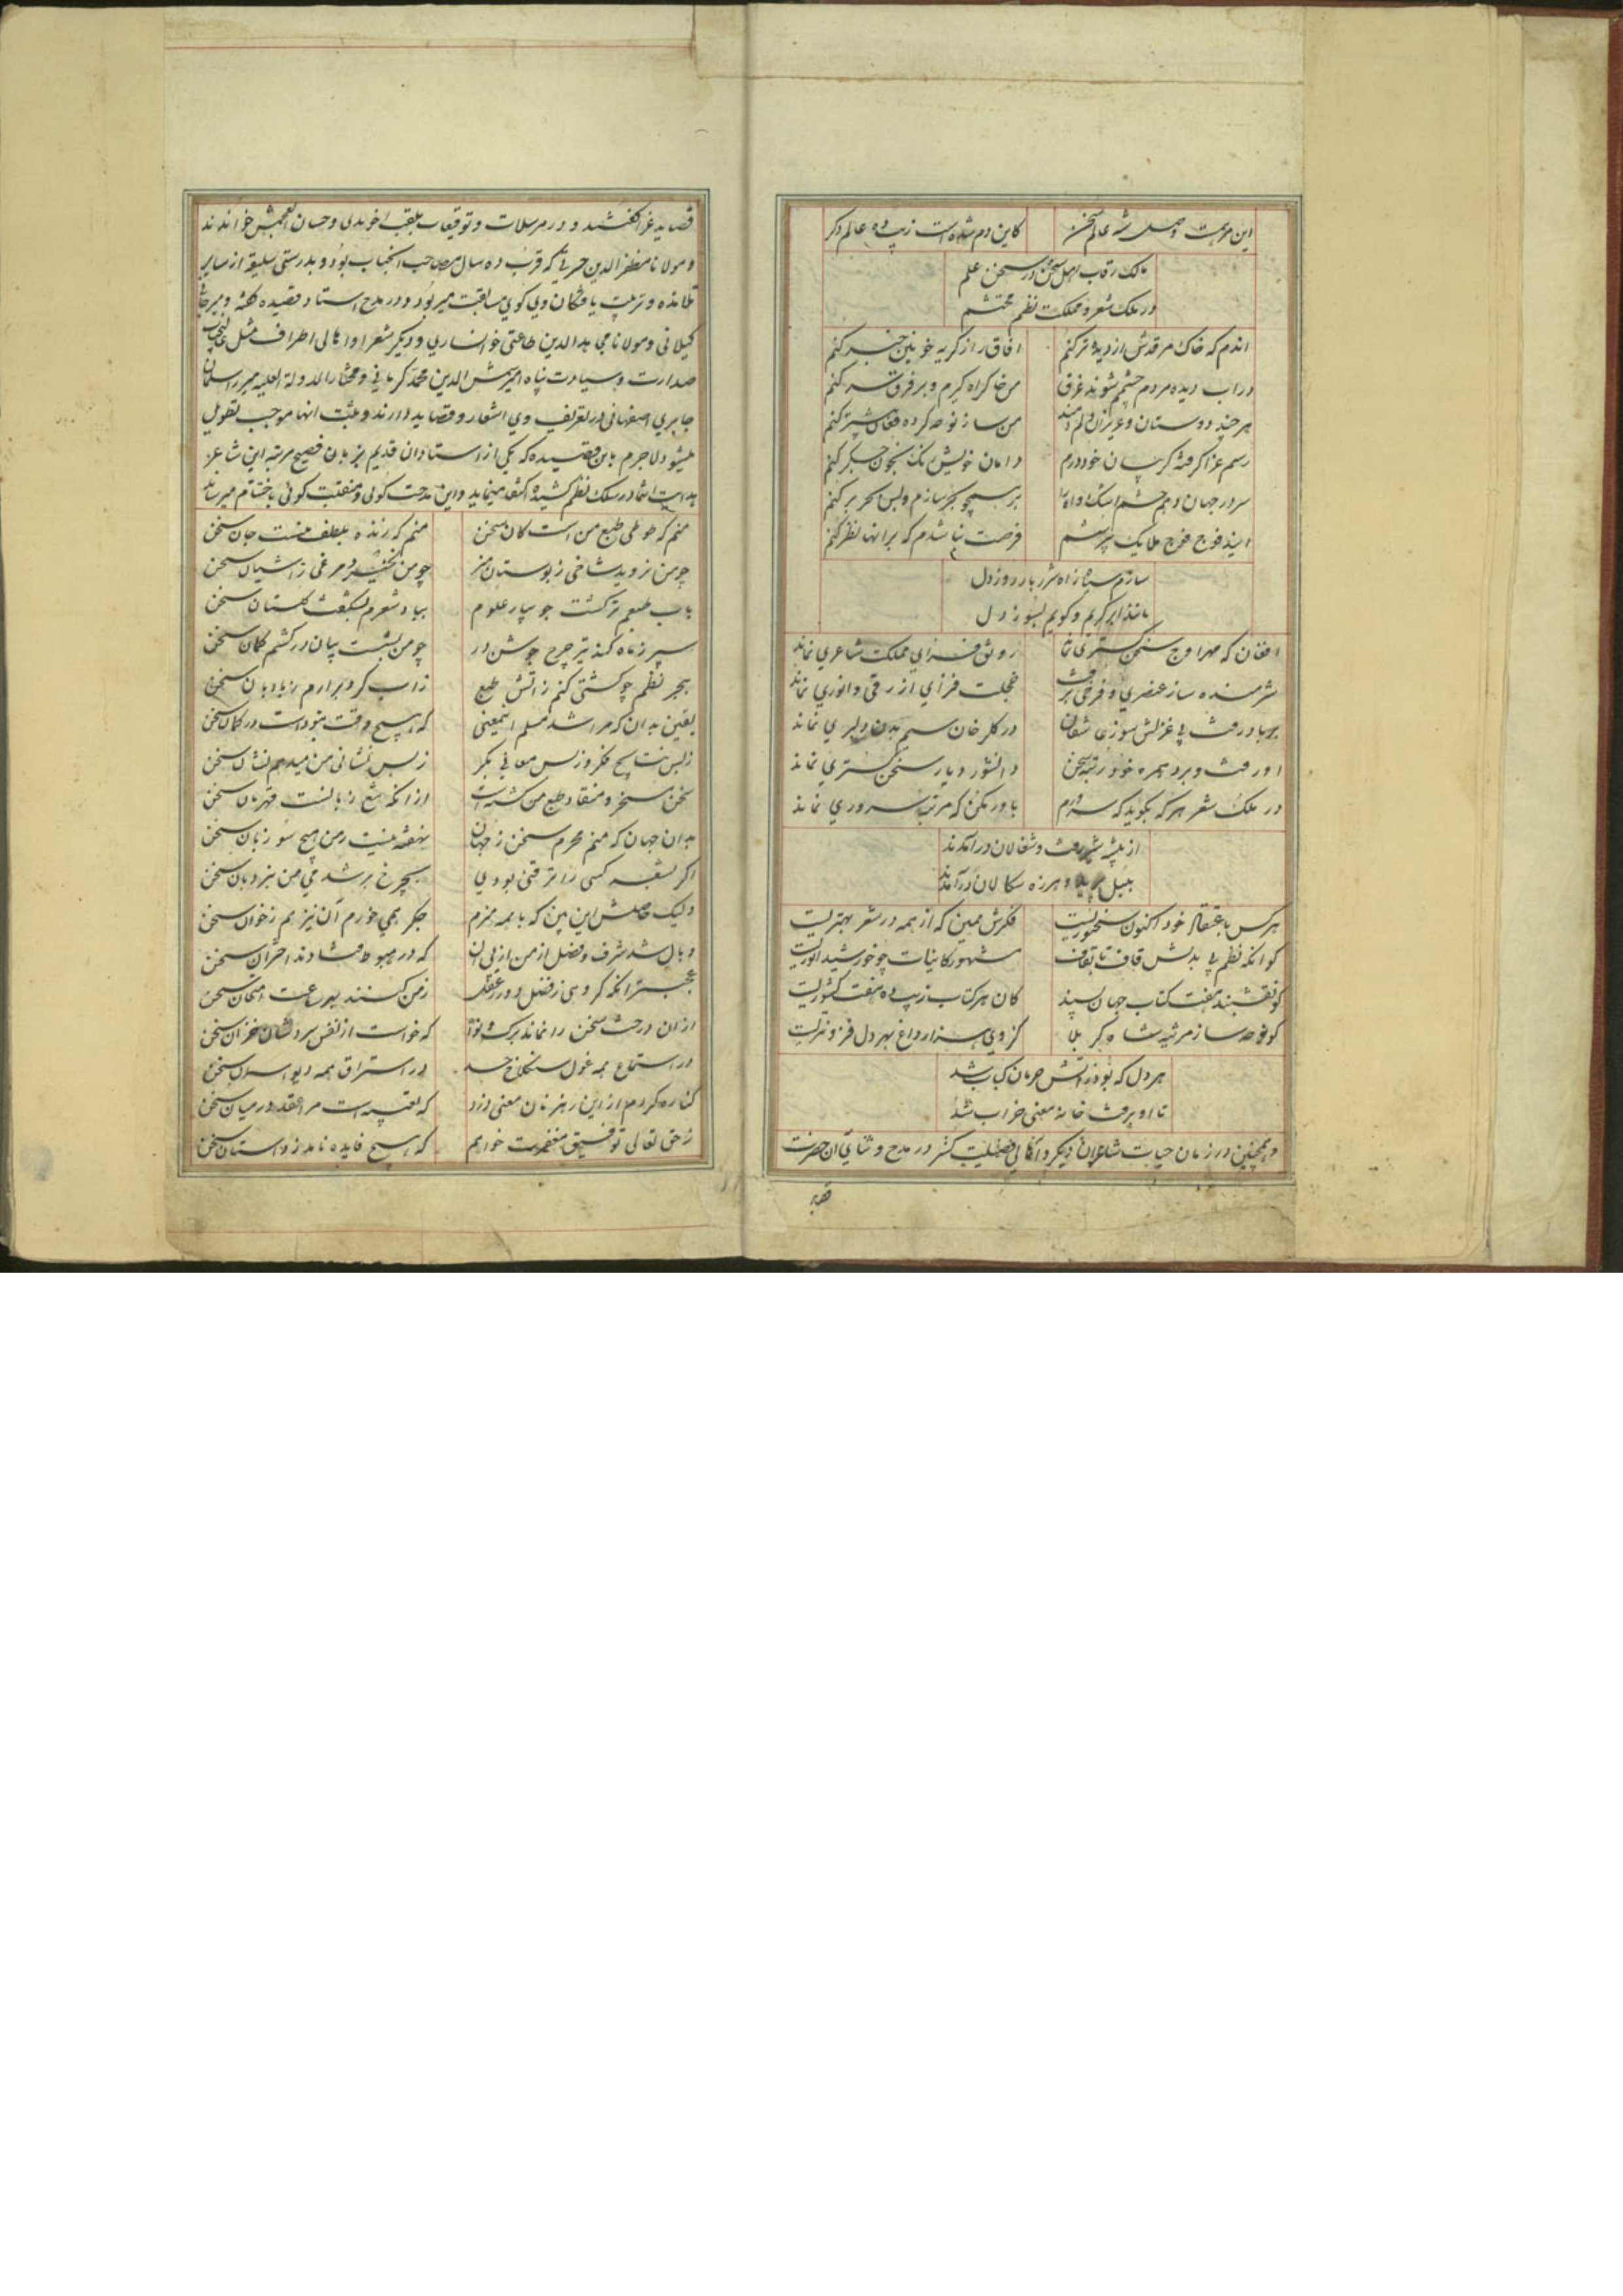 این مرثیت وصل شه عالم سخن
کاین دم شده است زیب ده عالم دگر
مالک رقاب اهل سخن در سخن علم
در ملک شعر و مملکت نظم محتشم
اندم که خاک مرقدش از دیده تر کنم
افاق را ز گریه خونین خبر کنم
در اب دیده مردم چشمم شوند غرق
من خاک راه گیرم و بر فرق سر کنم
هر چند دوستان و عزیزان دلم دهند
من ساز نوحه کرده فغان بیشتر کنم
رسم عزا گرفته گریبان خود درم
دامان خویش تک بخون جگر کنم
سرور جهان و هم چشم اشک و اه را
بر سیچو بحر سازم و بس بحر بر کنم
ایند فوج فوج ملایک بپرسشم
فرصت نباشدم که بر انها نظر کنم
سازم سیاه زاه شرربار روز دل
مانند ابر گریم و گویم بسوز دل
افغان که مهر اوج سخن گستری نماند
رونق فزای مملکت شاعری نماند
شرمنده ساز عنصری و فرخی برفت
خجلت فزای ازرقی و انوری نماند
بر باد رفت بی غزلش سوز عاشقان
در گلرخان سیم بدن دلبری نماند
او رفت و برد همره خود رتبه سخن
دانشور دیار سخن گستری نماند
در ملک شعر هر که بگوید که سرورم
باور مکن که مرتبه سروری نماند
از بیشه شیر رفت و شغالان در آمدند
بلبل پرید و هرزه سکالان در آمدند
هر کس باعتقاد خود اکنون سخنوریست
فکرش همین که از همه در شعر بهتریست
کو انکه نظم بی بدلش قاف تا بقاف
مشهور کاینات چو خورشید انوریست
کو نقشبند هفت کتاب جهان پسند
کان هر کتاب زیب ده هفت کشوریست
کو نوحه ساز مرثیه شاه کربلا
کز وی هزار داغ بهر دل فزونتریست
هر دل که بود ز اتش حرمان کباب شد
تا او برفت خانه معنی خراب شد
و همچنین در زمان حیات شاعران دیگر و اهالی فضیلت گستر در مدح و ثنای آن حضرت
قصاید غرا گفتند و در مرسلات و توقیعات بلقب اخوندی و حسان العجمش خواندند
و مولانا مظفر الدین حسرتی که قرب ده سال مصاحب انجناب بود و بدرستی سلیقه از سایر
تلامذه و تربیت یافتگان وی گوی سابقت میربود و در مدح استاد قصیده گفته و میرحاتم
گیلانی و مولانا محیی الدین طاعتی خوانساری و دیگر شعرا و اهالی اطراف مثل عالیجناب
صدارت و سیادت پناه امیر شمس الدین محمد کرمانی و مختار الدوله العلیه میرزا سلمان
جابری اصفهانی در تعریف وی اشعار و قصاید دارند و ثبت انها موجب تطویل
میشود لاجرم باین قصیده که یکی از استادان قدیم بزبان فصیح مرتبه این شاعر
بدایت انتما در سلک نظم کشیده اکتفا مینماید و این مدحت گوئی و منقبت گوئی باختتام میرساند
منم که طوطی طبع من است کان سخن
منم که زنده بلطف منست جان سخن
چو من نروید شاخی ز بوستان هنر
چو من نخیزد مرغی ز اشیان سخن
باب طبعم تر گشت جویبار علوم
بباد شعرم بشکفت گلستان سخن
سپر ز ماه کند تیر چرخ جوشن در
چو من بشست بیان در کشم کمان سخن
ببحر نظم چو کشتی کنم ز اتش طبع
ز اب گرد برارم ز بادبان سخن
یقین بدان که مرا شد مسلم این معنی
که هیچ وقت نبودست در گمان سخن
ز بس نتایج فکر و ز بس معانی بکر
ز بس نشانی من میدهم نشان سخن
سخن مسخر و منقاد طبع من گشتست
از انکه تیغ زبانست قهرمان سخن
بدان جهان که منم محرم سخن ز جهان
نهفته نیست ز من هیچ سو زبان سخن
اگر بشعر کسی را ترقئی بودی
بچرخ بر شدمی من بنردبان سخن
ولیک حاصلش این بین که با همه هنرم
جگر همی خورم آن نیز هم ز خوان سخن
وبال شد شرف و فضل از من از پی ان
که در هبوط فتادند اختران سخن
عجبتر انکه گروهی ز فضل دور ز عقل
ز من کنند بهر ساعت امتحان سخن
از ان درخت سخن را نماند برگ و نوا
که خواست از نفس سردشان خزان سخن
در استماع همه غول سنگلاخ حسد
در استراق همه دیو اسمان سخن
کناره کردم از این رهزنان معنی دزد
که تعبیه است مرا عقد در میان سخن
ز حق تعالی توفیق مغفرت خواهم
که هیچ فایده نامد ز داستان سخن